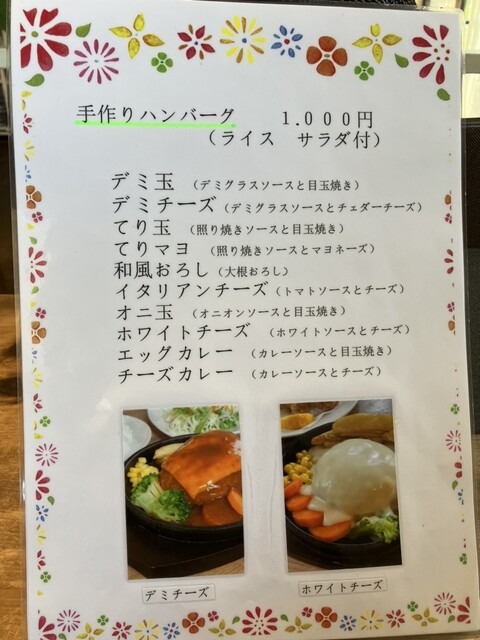 手作りハンバーグ　１.０００円
（ライス　サラダ付）
デミ玉　（デミグラスソースと目玉焼き）
デミチーズ（デミグラスソースとチェダーチーズ）
てり玉　（照り焼きソースと目玉焼き）
てりマヨ　（照り焼きソースとマヨネーズ）
和風おろし（大根おろし）
イタリアンチーズ（トマトソースとチーズ）
オニ玉　（オニオンソースと目玉焼き）
ホワイトチーズ　（ホワイトソースとチーズ）
エッグカレー　（カレーソースと目玉焼き）
チーズカレー　（カレーソースとチーズ）
デミチーズ
ホワイトチーズ